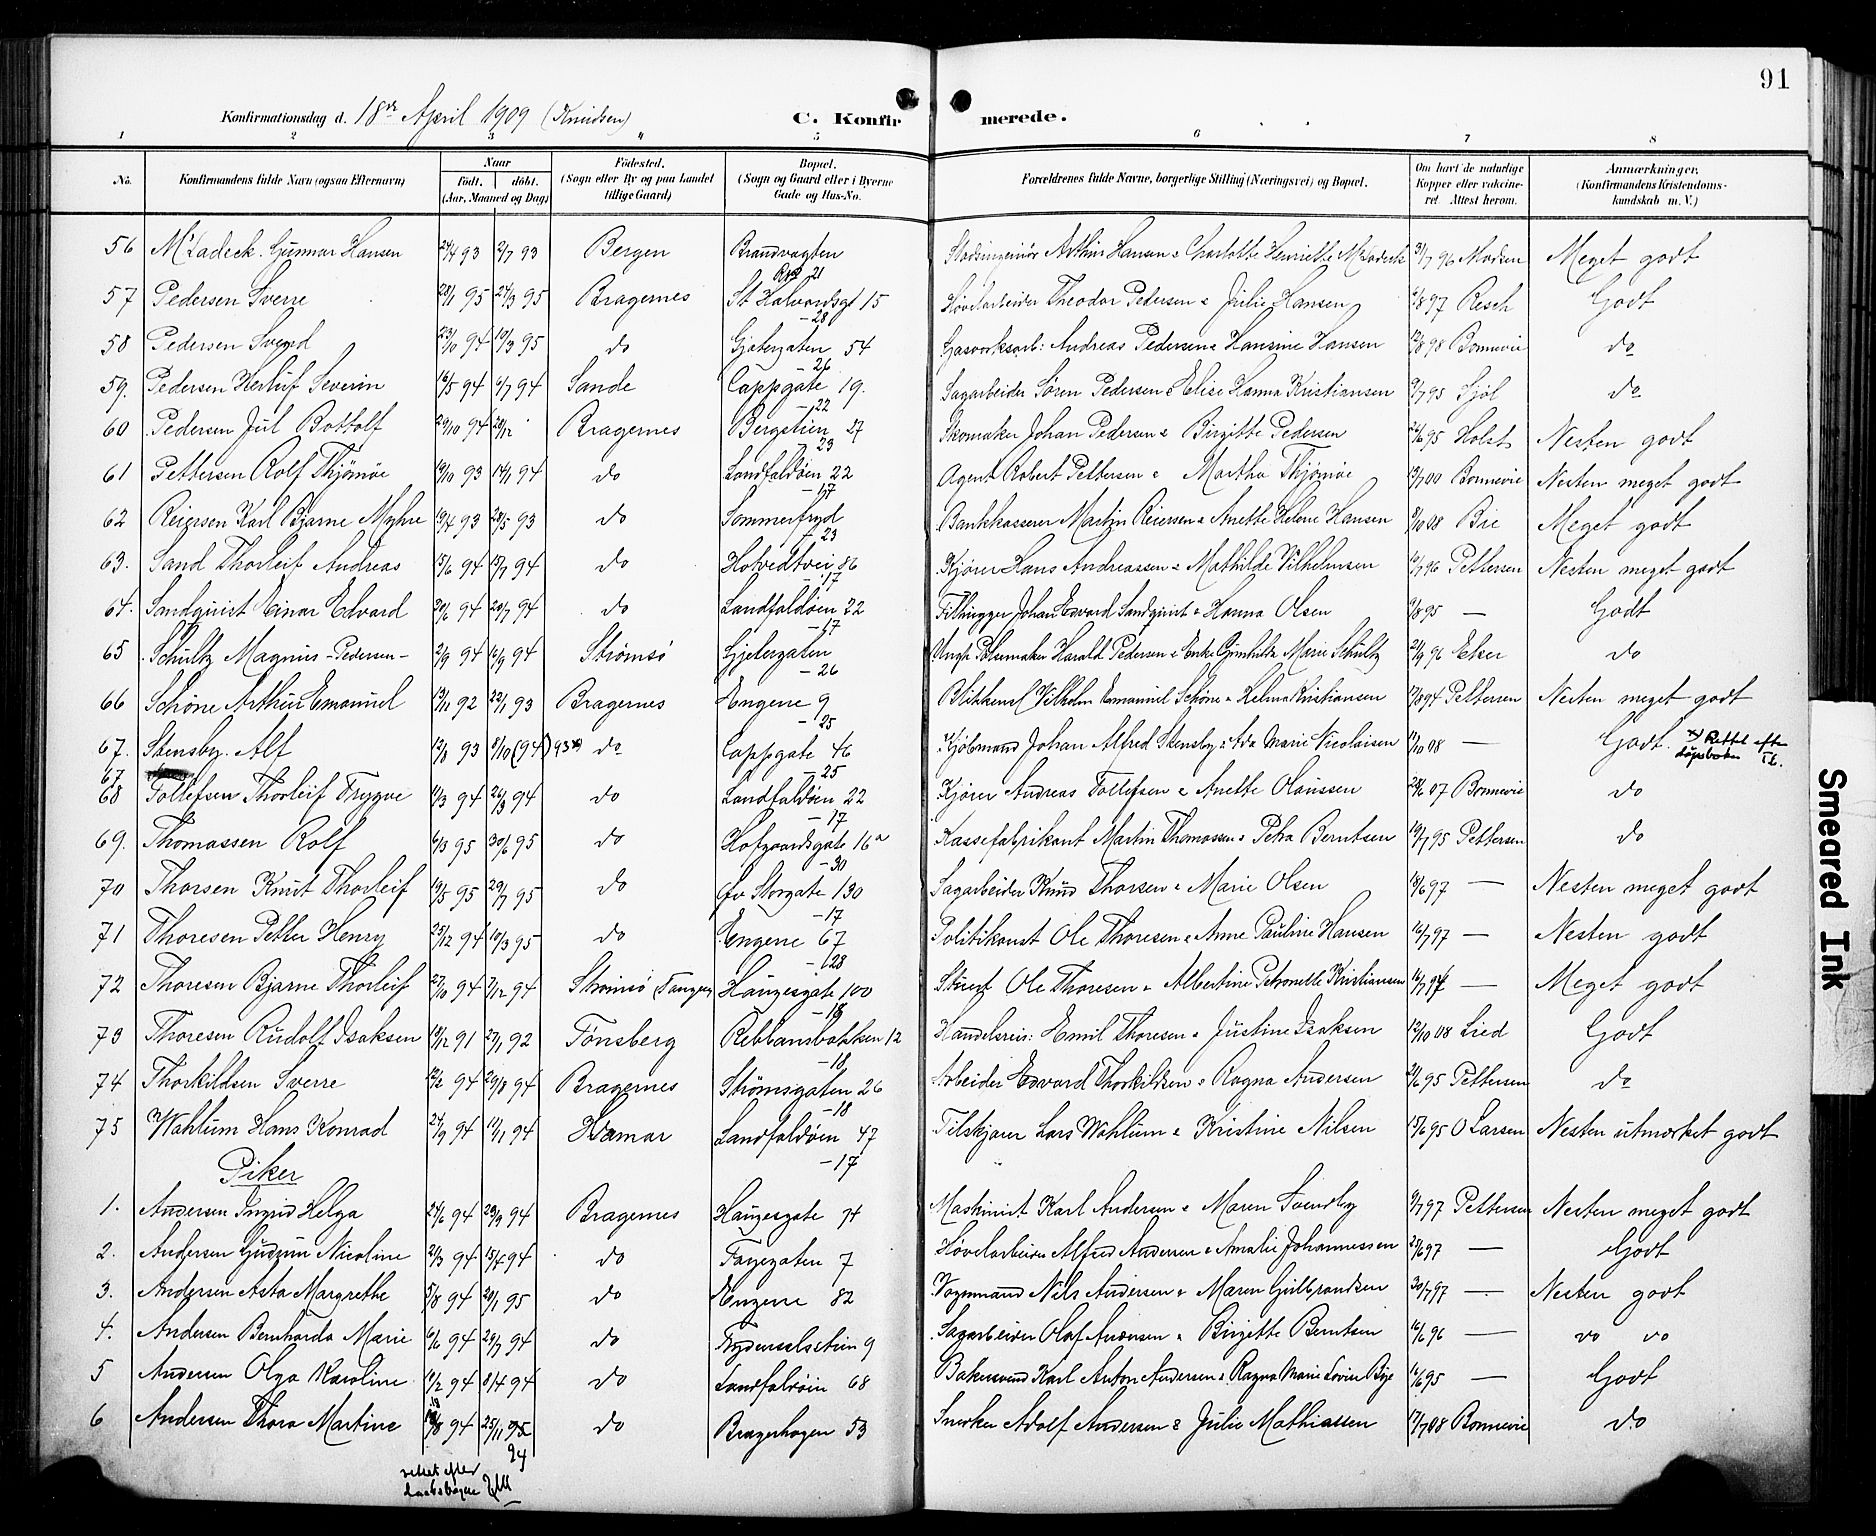 91
Konfirmationsdag d. 18de April 1909 (Knudsen) C. Konfirmerede.
1 2 3 4 5 6 7 8
No. Konfirmandens fulde Navn (ogsaa Efternavn) Naar født. døbt. (Aar, Maaned og Dag) Fødested. (Sogn eller By og paa Landet tillige Gaard) Bopæl. (Sogn og Gaard eller i Byerne Gade og Hus-No. Forældrenes fulde Navne, borgerlige Stilling (Næringsvei) og Bopæl. Om havt de naturlige Kopper eller vakcineret. Attest herom. Anmærkninger. (Konfirmandens Kristendomskundskab m. V.)
56 McLadeck Gunnar Hansen 24/4 93 2/7 93 Bergen Brandvagten Stadsingeniør Arthur Hansen & Charlotte Henriette McLadeck 3/7 96 Madsen Meget godt
57 Pedersen Sverre 28/1 95 24/3 95 Bragernes St Halvardsgt 15 Høvlarbeider Theodor Pedersen & Julie Hansen 2/8 97 Resch Godt
58 Pedersen Svend 23/10 94 10/3 95 do Gjetergaten 54 Gasverksarb: Andreas Pedersen & Hansine Hansen 12/8 98 Bonnevie do
59. Pedersen Herluf Severin 16/5 94 1/7 94 Sande Cappsgate 19. Sagarbeider Søren Pedersen & Elise Hanna Kristiansen 9/7 95 do
60 Pedersen Jul Bottolf 29/10 94 28/12 Bragernes Bergstien 27 Skomaker Johan Pedersen & Birgitte Pedersen 26/6 95 Holst Nesten godt
61 Pettersen Rolf Thjømøe 19/10 93 14/1 94 do Landfaldøen 22 Agent Robert Pettersen & Martha Thjømøe 13/7 00 Bonnevie Nesten meget godt
62 Reiersen Karl Bjarne Myhre 13/4 93 28/5 93 do Sommerfryd Bankkasserer Martin Reiersen & Anette Helene Hansen 8/10 08 Bie Meget godt
63. Sand Thorleif Andreas 15/6 94 15/7 94 do Hotvedtvei 86 Kjører Hans Andreassen & Mathilde Vilhelmsen 10/7 96 Pettersen Nesten meget godt
64. Sandquist Einar Edvard 20/6 94 29/7 94 do Landfaldøen 22 Filhugger Johan Edvard Sandquist & Hanna Olsen 9/8 95 — Godt
65 Schultz Magnus - Pedersen - 2/9 94 16/9 94 Strømsø Gjetergaten Harald Pedersen & Marie Schultz 24/9 96 do
66 Schøne Arthur Emanuel 13/11 92 22/1 93 Bragernes Engene 9 Blikkensl Vilhelm Emanuel Schøne & Helma Kristiansen 17/8 94 Pettersen Nesten meget godt
67. Stensby. Alf 12/8 93 8/10 (94) 93 x) do Cappsgate 46 Kjøbmand Johan Alfred Stensby & Ada Marie Nicolaisen 17/10 08 — Godt. x) Rettet efter dåpsboken
68 Tollefsen Thorleif Trygve 11/3 94 26/3 94 do Landfaldøen 22 Kjører Andreas Tollefsen & Anette Olaussen 28/6 07 Bonnevie do
69. Thomassen Rolf 6/3 95 30/6 95 do Hofgaardsgate 16a Kassefabrikant Martin Thomassen & Petra Berntsen 19/7 95 Pettersen do
70 Thorsen Knut Thorleif 19/5 95 29/7 95 do Øv Storgate 130 Sagarbeider Knud Thorsen & Marie Olsen 18/6 97 — Nesten meget godt
71 Thoresen Petter Henry 25/12 94 10/3 95 do Engene 67 Politikonst Ole Thoresen & Anne Pauline Hansen 16/7 97 — Nesten godt
72 Thoresen Bjarne Thorleif 27/10 94 2/12 94 Strømsø (Tangen) Haugesgate 100 Ole Thoresen & Albertine Petronelle Kristiansen 16/7 97 — Meget godt
73 Thoresen Rudolf Isaksen 19/12 91 27/1 92 Tønsberg Rebbansbakken 12 Handelsreis: Emil Thoresen & Justine Isaksen 12/10 08 Lied Godt
74 Thorkildsen Sverre 12/2 94 29/8 94 Bragernes Strømsgaten 26 Arbeider Edvard Thorkildsen & Ragna Andersen 21/6 95 Pettersen do
75 Wahlum Hans Konrad 24/9 94 11/11 94 Hamar Landfaldøen 47 Tilskjærer Lars Wahlum & Kristine Nilsen 15/6 95 O Larsen Nesten utmerket godt
Piker
1. Andersen Ingrid Helga 24/6 94 23/9 94 Bragernes Haugesgate 74 Maskinist Karl Andersen & Maren Svendby 9/7 97 Pettersen Nesten meget godt
2. Andersen Gudrun Nicoline 21/3 94 15/4 94 do Fagegaten 7 Høvelarbeider Alfred Andersen & Amalie Johannessen 25/6 97 — Godt
3. Andersen Asta Margrethe 5/8 94 20/1 95 do Engene 82 Vognmand Nils Andersen & Maren Gulbrandsen 30/7 97 — Nesten godt
4. Andersen Bernharda Marie 6/6 94 29/7 94 do 9 Sagarbeider Olaf Andersen & Birgitte Berntsen 16/6 96 — do do
5 Andersen Olga Karoline 10/2 94 8/4 94 do Landfaldøen 68 Bakersvend Karl Anton Andersen & Ragna Marie Lovise Bye 14/6 95 — Godt
6 Andersen Thora Martine 18/8 94 25/11 95 do Bragerhagen 53 Snerker Adolf Andersen & Julie Mathiassen 17/7 08 Bonnevie do
94
rettet efter daabsbogen
Smeared Ink